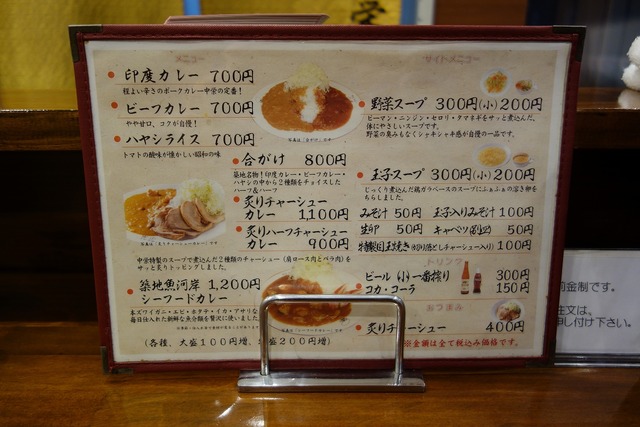 印度カレー 700円
程よい辛さのポークカレー中栄の定番!
ビーフカレー 700円
やや甘口、コクが自慢!
ハヤシライス 700円
トマトの酸味が懐かしい昭和の味
合がけ 800円
築地名物!印度カレー・ビーフカレー・
ハヤシの中から2種類をチョイスした
ハーフ&ハーフ
炙りチャーシュー
カレー 1,100円
炙りハーフチャーシュー
カレー 900円
中栄特製のスープで煮込んだ2種類のチャーシュー(肩ロース肉とバラ肉)を
サッと炙りトッピングしました。
築地魚河岸 1,200円
シーフードカレー
本ズワイガニ・エビ・ホタテ・イカ・アサリな
毎日仕入れた新鮮な魚介類を贅沢に使いました
(各種、大盛100円増、 盛200円増)
野菜スープ 300円(小)200円
ピーマン・ニンジン・セロリ・タマネギをサッと煮込んだ、
体にやさしいスープです。
野菜の臭みもなくシャキシャキ感が自慢の一品です。
玉子スープ 300円(小)200円
じっくり煮込んだ鶏ガラベースのスープにふぁふぁの溶き卵を
ちらしました。
みそ汁 50円 玉子入りみそ汁 100円
生卵 50円 キャベツ(別皿) 50円
特製目玉焼き(切り落としチャーシュー入り) 100円
ビール(小)一番搾り 300円
コカ・コーラ 150円
炙りチャーシュー 400円
※金額は全て税込み価格です。
金制です。
注文は、
し付け下さい。